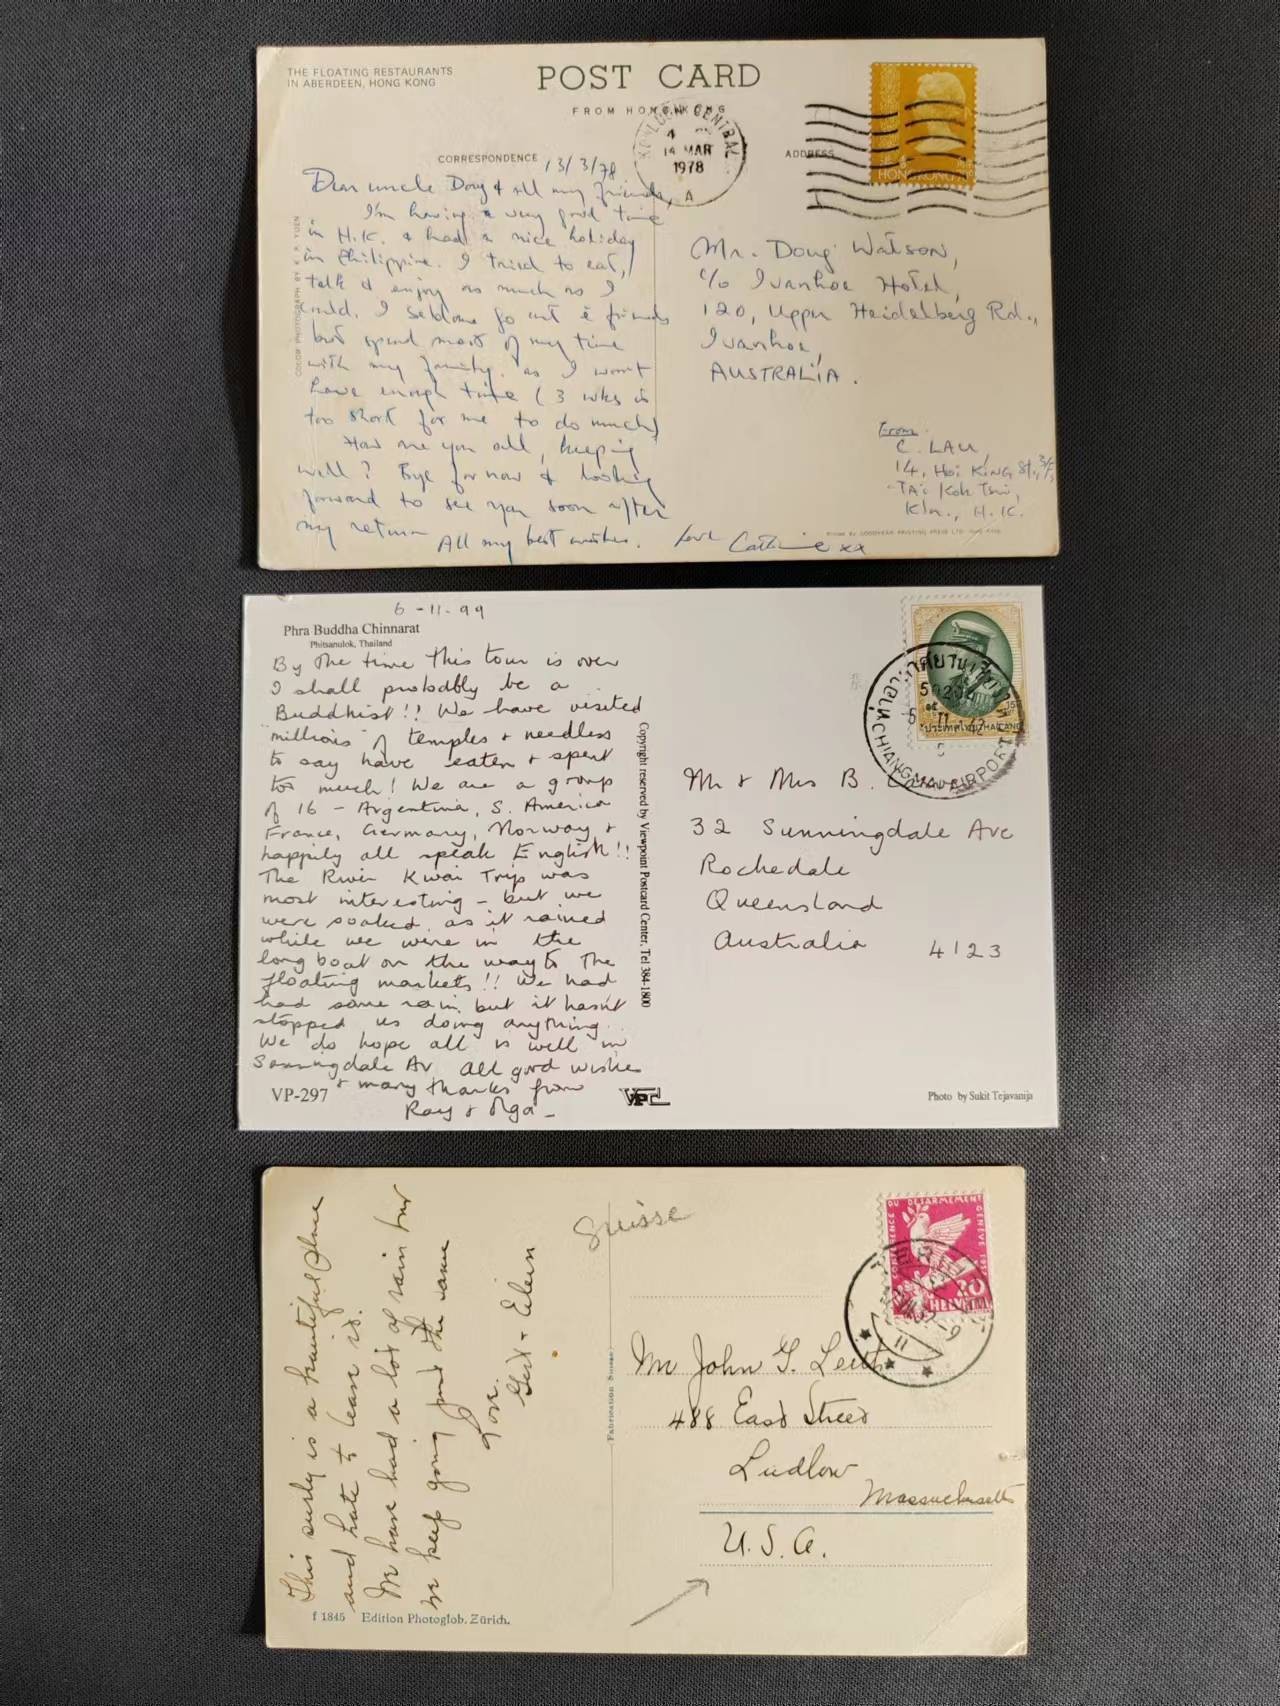 THE FLOATING RESTAURANTS
IN ABERDEEN, HONG KONG
POST CARD
FROM HONG KONG
KOWLOON CENTRAL
14 MAR
1978
A
HONG KONG
CORRESPONDENCE
ADDRESS
13/3/78
Dear uncle Doug & all my friends,
I'm having a very good time
in H.K. & had a nice holiday
in Philippine. I tried to eat,
talk & enjoy as much as I
could. I seldome go out c̄ friends
but spend most of my time
with my family, as I won't
have enough time (3 wks is
too short for me to do much)
How are you all, keeping
well? Bye for now & looking
forward to see you soon after
my return
All my best wishes. Love Catherine xx
COLOR PHOTOGRAPH BY K. P. YUEN
Mr. Doug Watson,
c/o Ivanhoe Hotel,
120, Upper Heidelberg Rd.,
Ivanhoe,
AUSTRALIA.
From
C. LAU,
14, Hoi KING St., 3/F,
TAi Kok Tsui,
Kln., H.K.
6-11-99
Phra Buddha Chinnarat
Phitsanulok, Thailand
By the time this tour is over
I shall probably be a
Buddhist!! We have visited
millions of temples & needless
to say have eaten & spent
too much! We are a group
of 16 - Argentina, S. America
France, Germany, Norway &
happily all speak English!!
The River Kwai Trip was
most interesting - but we
were soaked as it rained
while we were in the
long boat on the way to the
floating markets!! We had
had some rain but it hasn't
stopped us doing anything.
We do hope all is well in
Sunningdale Av All good wishes
& many thanks from
Ray & Olga -
VP-297
VPC
Copyright reserved by Viewpoint Postcard Center, Tel 384-1800
ประเทศไทย THAILAND
CHIANGMAI AIRPORT
Mr & Mrs B.
32 Sunningdale Ave
Rochedale
Queensland
Australia 4123
Photo by Sukit Tejavanija
This surely is a beautiful place
and hate to leave it.
We have had a lot of rain but
we keep going just the same
Love.
Gert & Eileen
f 1845 Edition Photoglob, Zürich.
Fabrication Suisse
Suisse
CONFERENCE DU DESARMEMENT GENEVE 1932
20
HELVETIA
Mr John G. Leith
488 East Street
Ludlow
Massachusetts
U.S.A.